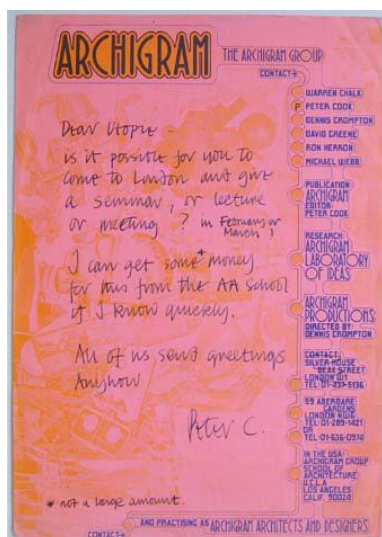 ARCHIGRAM
THE ARCHIGRAM GROUP
CONTACT→
WARREN CHALK
P PETER COOK
DENNIS CROMPTON
DAVID GREENE
RON HERRON
MICHAEL WEBB
PUBLICATION
ARCHIGRAM
EDITOR:
PETER COOK
RESEARCH:
ARCHIGRAM
LABORATORY
OF IDEAS
ARCHIGRAM
PRODUCTIONS:
DIRECTED BY:
DENNIS CROMPTON
CONTACT:
SILVER HOUSE
BEAK STREET
LONDON W1
TEL·01-437-5136
59 ABERDARE
GARDENS
LONDON NW6
TEL·01-289-1421
OR
TEL·01-636-0974
IN THE USA:
ARCHIGRAM GROUP
SCHOOL OF
ARCHITECTURE
U.C.L.A
LOS ANGELES
CALIF. 90024
Dear Utopie –
is it possible for you to
come to London and give
a seminar, or lecture
or meeting? in February or
March?
I can get some * money
for this from the AA school
if I know quickly.
All of us send greetings
Anyhow
Peter C.
* not a large amount.
CONTACT→
AND PRACTISING AS ARCHIGRAM ARCHITECTS AND DESIGNERS